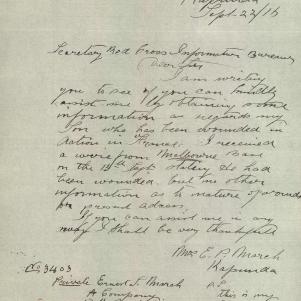 Kapunda
Sept. 22/16
Secretary Red Cross Information Bureau
Dear Sir
I am writing
you to see if you can kindly
assist me by obtaining some
information as regards my
Son who has been wounded in
Action in France. I received
a wire from Melbourne Base
on the Sept stating he had
been wounded but no other
information as to nature of wounds
or present address.
If you can assist me in any
way I shall be very thankful
Mrs. E. P. March
Kapunda
No 3403
Private Ernest J. March
A Company
this is my